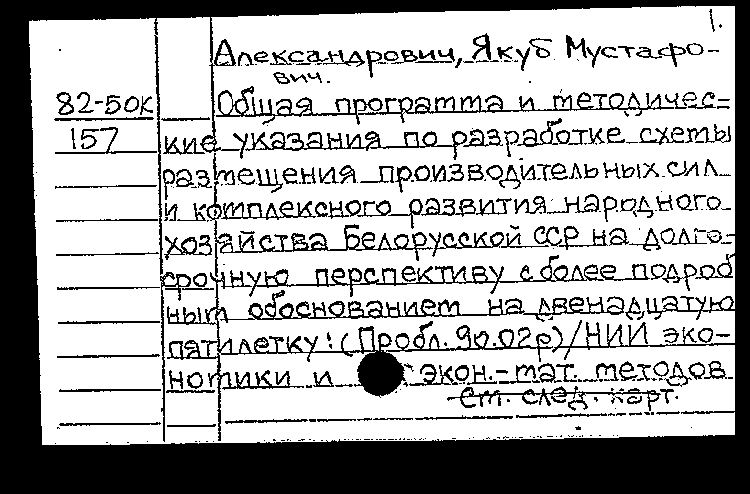 1.
Александрович, Якуб Мустафо-
вич.
82-50К Общая программа и методичес-
157 кие указания по разработке схемы
размещения производительных сил
и комплексного развития народного
хозяйства Белорусской ССР на долго-
срочную перспективу с более подроб
ным обоснованием на двенадцатую
пятилетку: (Пробл. 90.02р)/НИИ эко-
номики и экон.-мат. методов
См. след. карт.